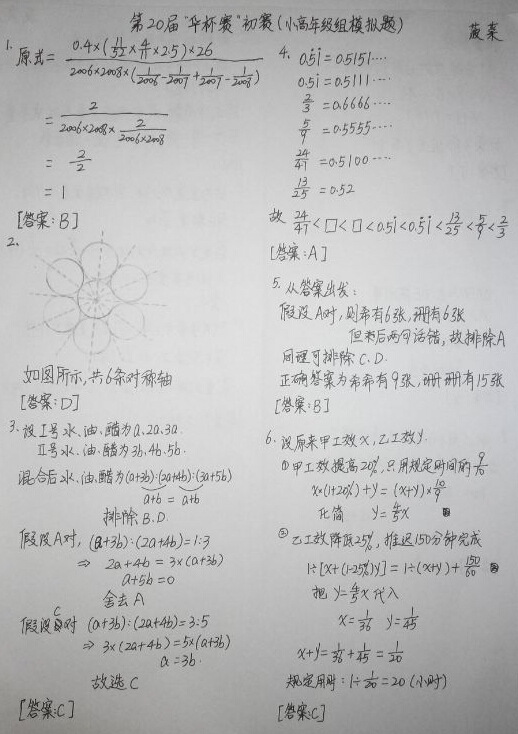 第20届"华杯赛"初赛(小高年级组模拟题)
菠菜
1. 原式= 0.4×(11/32×4/11×2.5)×26 / 2006×2008×(1/2006-1/2007+1/2007-1/2008)
= 2 / 2006×2008×2/2006×2008
= 2/2
= 1
[答案:B]
2.
如图所示,共6条对称轴
[答案:D]
3. 设Ⅰ号水、油、醋为a.2a.3a.
Ⅱ号水、油、醋为3b.4b.5b.
混合后水、油、醋为(a+3b):(2a+4b):(3a+5b)
a+b = a+b
排除B.D.
假设A对, (a+3b):(2a+4b)=1:3
⇒ 2a+4b=3×(a+3b)
a+5b=0
舍去A
假设C对 (a+3b):(2a+4b)=3:5
⇒ 3×(2a+4b)=5×(a+3b)
a=3b.
故选C
[答案:C]
4. 0.5̇1̇=0.5151····
0.51̇=0.5111····
2/3=0.6666····
5/9=0.5555····
24/47=0.5100····
13/25=0.52
故 24/47<□<□<0.51̇<0.5̇1̇<13/25<5/9<2/3
[答案:A]
5. 从答案出发:
假设A对,则希有6张,珊有6张
但末后两句话错,故排除A
同理可排除C.D.
正确答案为希希有9张,珊珊有15张
[答案:B]
6. 设原来甲工效x,乙工效y.
①甲工效提高20%,只用规定时间的9/10
x×(1+20%)+y=(x+y)×10/9
化简 y=4/5x
②乙工效降低25%,推迟150分钟完成
1÷[x+(1-25%)y]=1÷(x+y)+150/60
把y=4/5x代入
x=1/36 y=1/45
x+y=1/36+1/45=1/20
规定用时:1÷1/20=20(小时)
[答案:C]